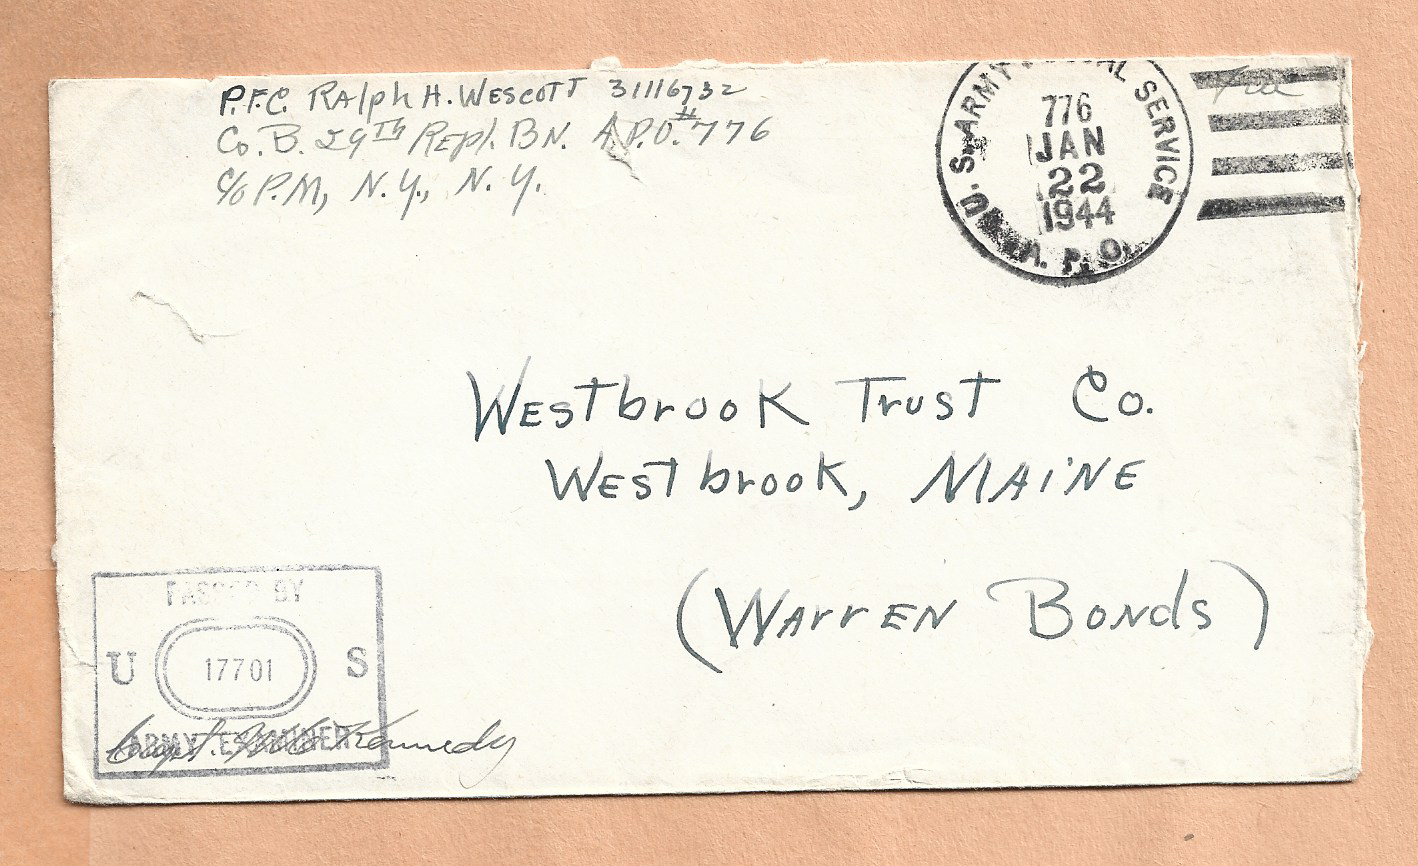 P.F.C. RAlph H. WESCOTT 31116732
Co. B. 29Th Repl. BN. A.P.O. #776
c/o P.M, N.Y., N.Y.
U.S. ARMY POSTAL SERVICE
776
JAN
22
1944
A. P. O.
Free
WEstbrook Trust Co.
WEstbrook, MAiNE
(WArrEN BoNds)
PASSED BY
U 17701 S
ARMY EXAMINER
Capt. Kennedy